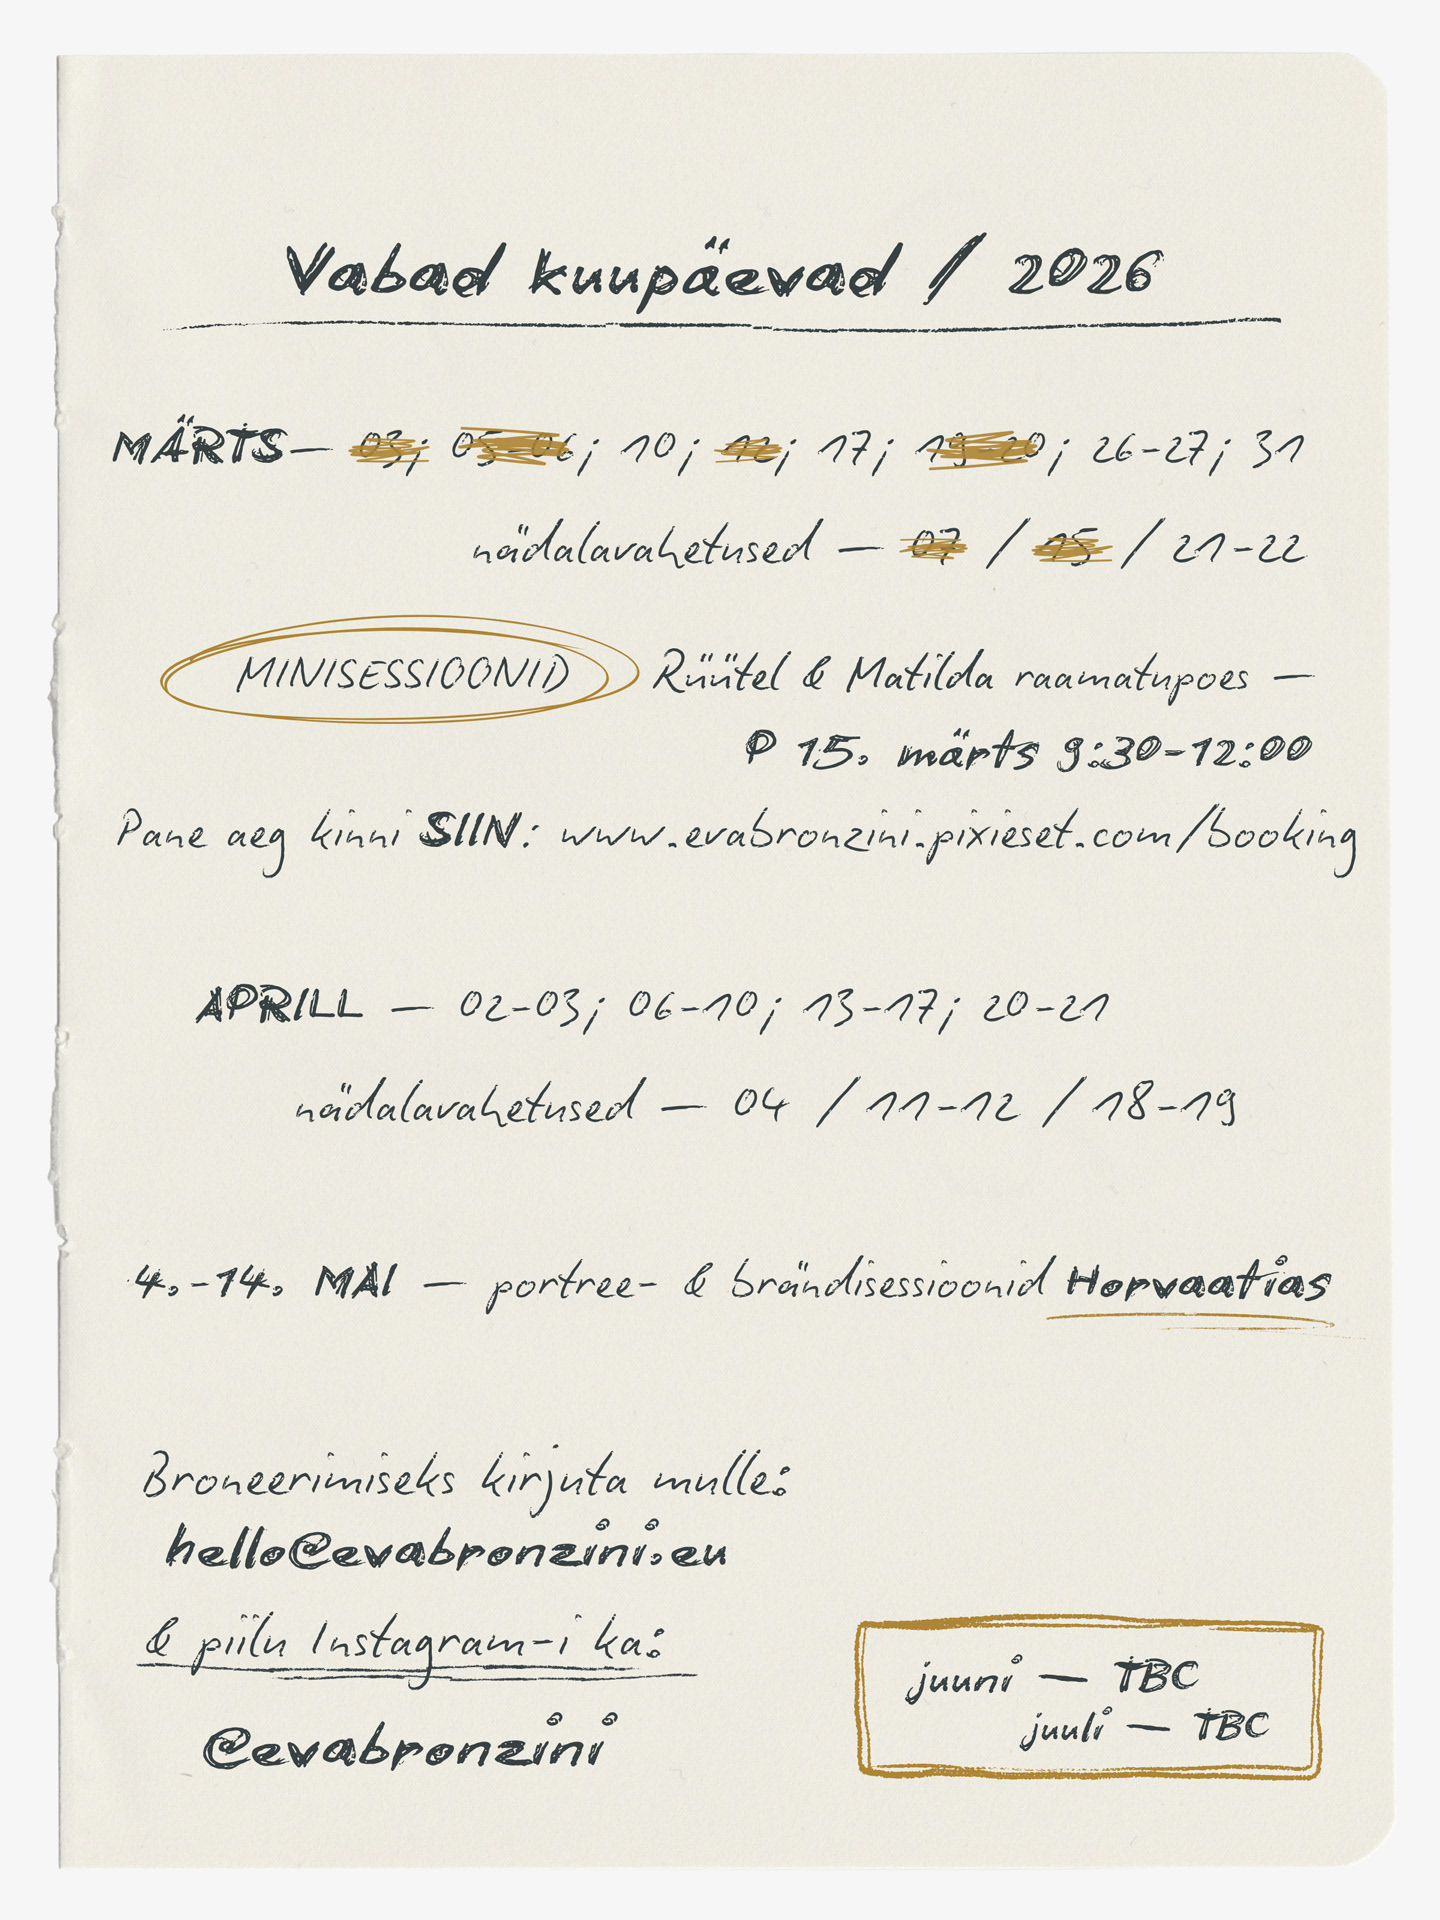 Vabad kuupäevad / 2026
MÄRTS— 03; 05-06; 10; 12; 17; 19-20; 26-27; 31
nädalavahetused — 07 / 15 / 21-22
MINISESSIOONID Rüütel & Matilda raamatupoes —
P 15. märts 9:30-12:00
Pane aeg kinni SIIN: www.evabronzini.pixieset.com/booking
APRILL — 02-03; 06-10; 13-17; 20-21
nädalavahetused — 04 / 11-12 / 18-19
4.-14. MAI — portree- & brändisessioonid Horvaatias
Broneerimiseks kirjuta mulle:
hello@evabronzini.eu
& piilu Instagram-i ka:
@evabronzini
juuni — TBC
juuli — TBC